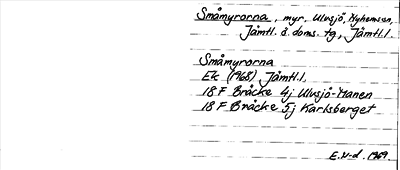 Småmyrorna, myr, Ulvsjö, Nyhemssn,
Jämtl. ö. doms. tg, Jämtl.l.
Småmyrorna
Ek (1968) Jämtl.l.
18 F Bräcke 4j Ulvsjö-Manen
18 F Bräcke 5j Karlsberget
E.N-d. 1969.